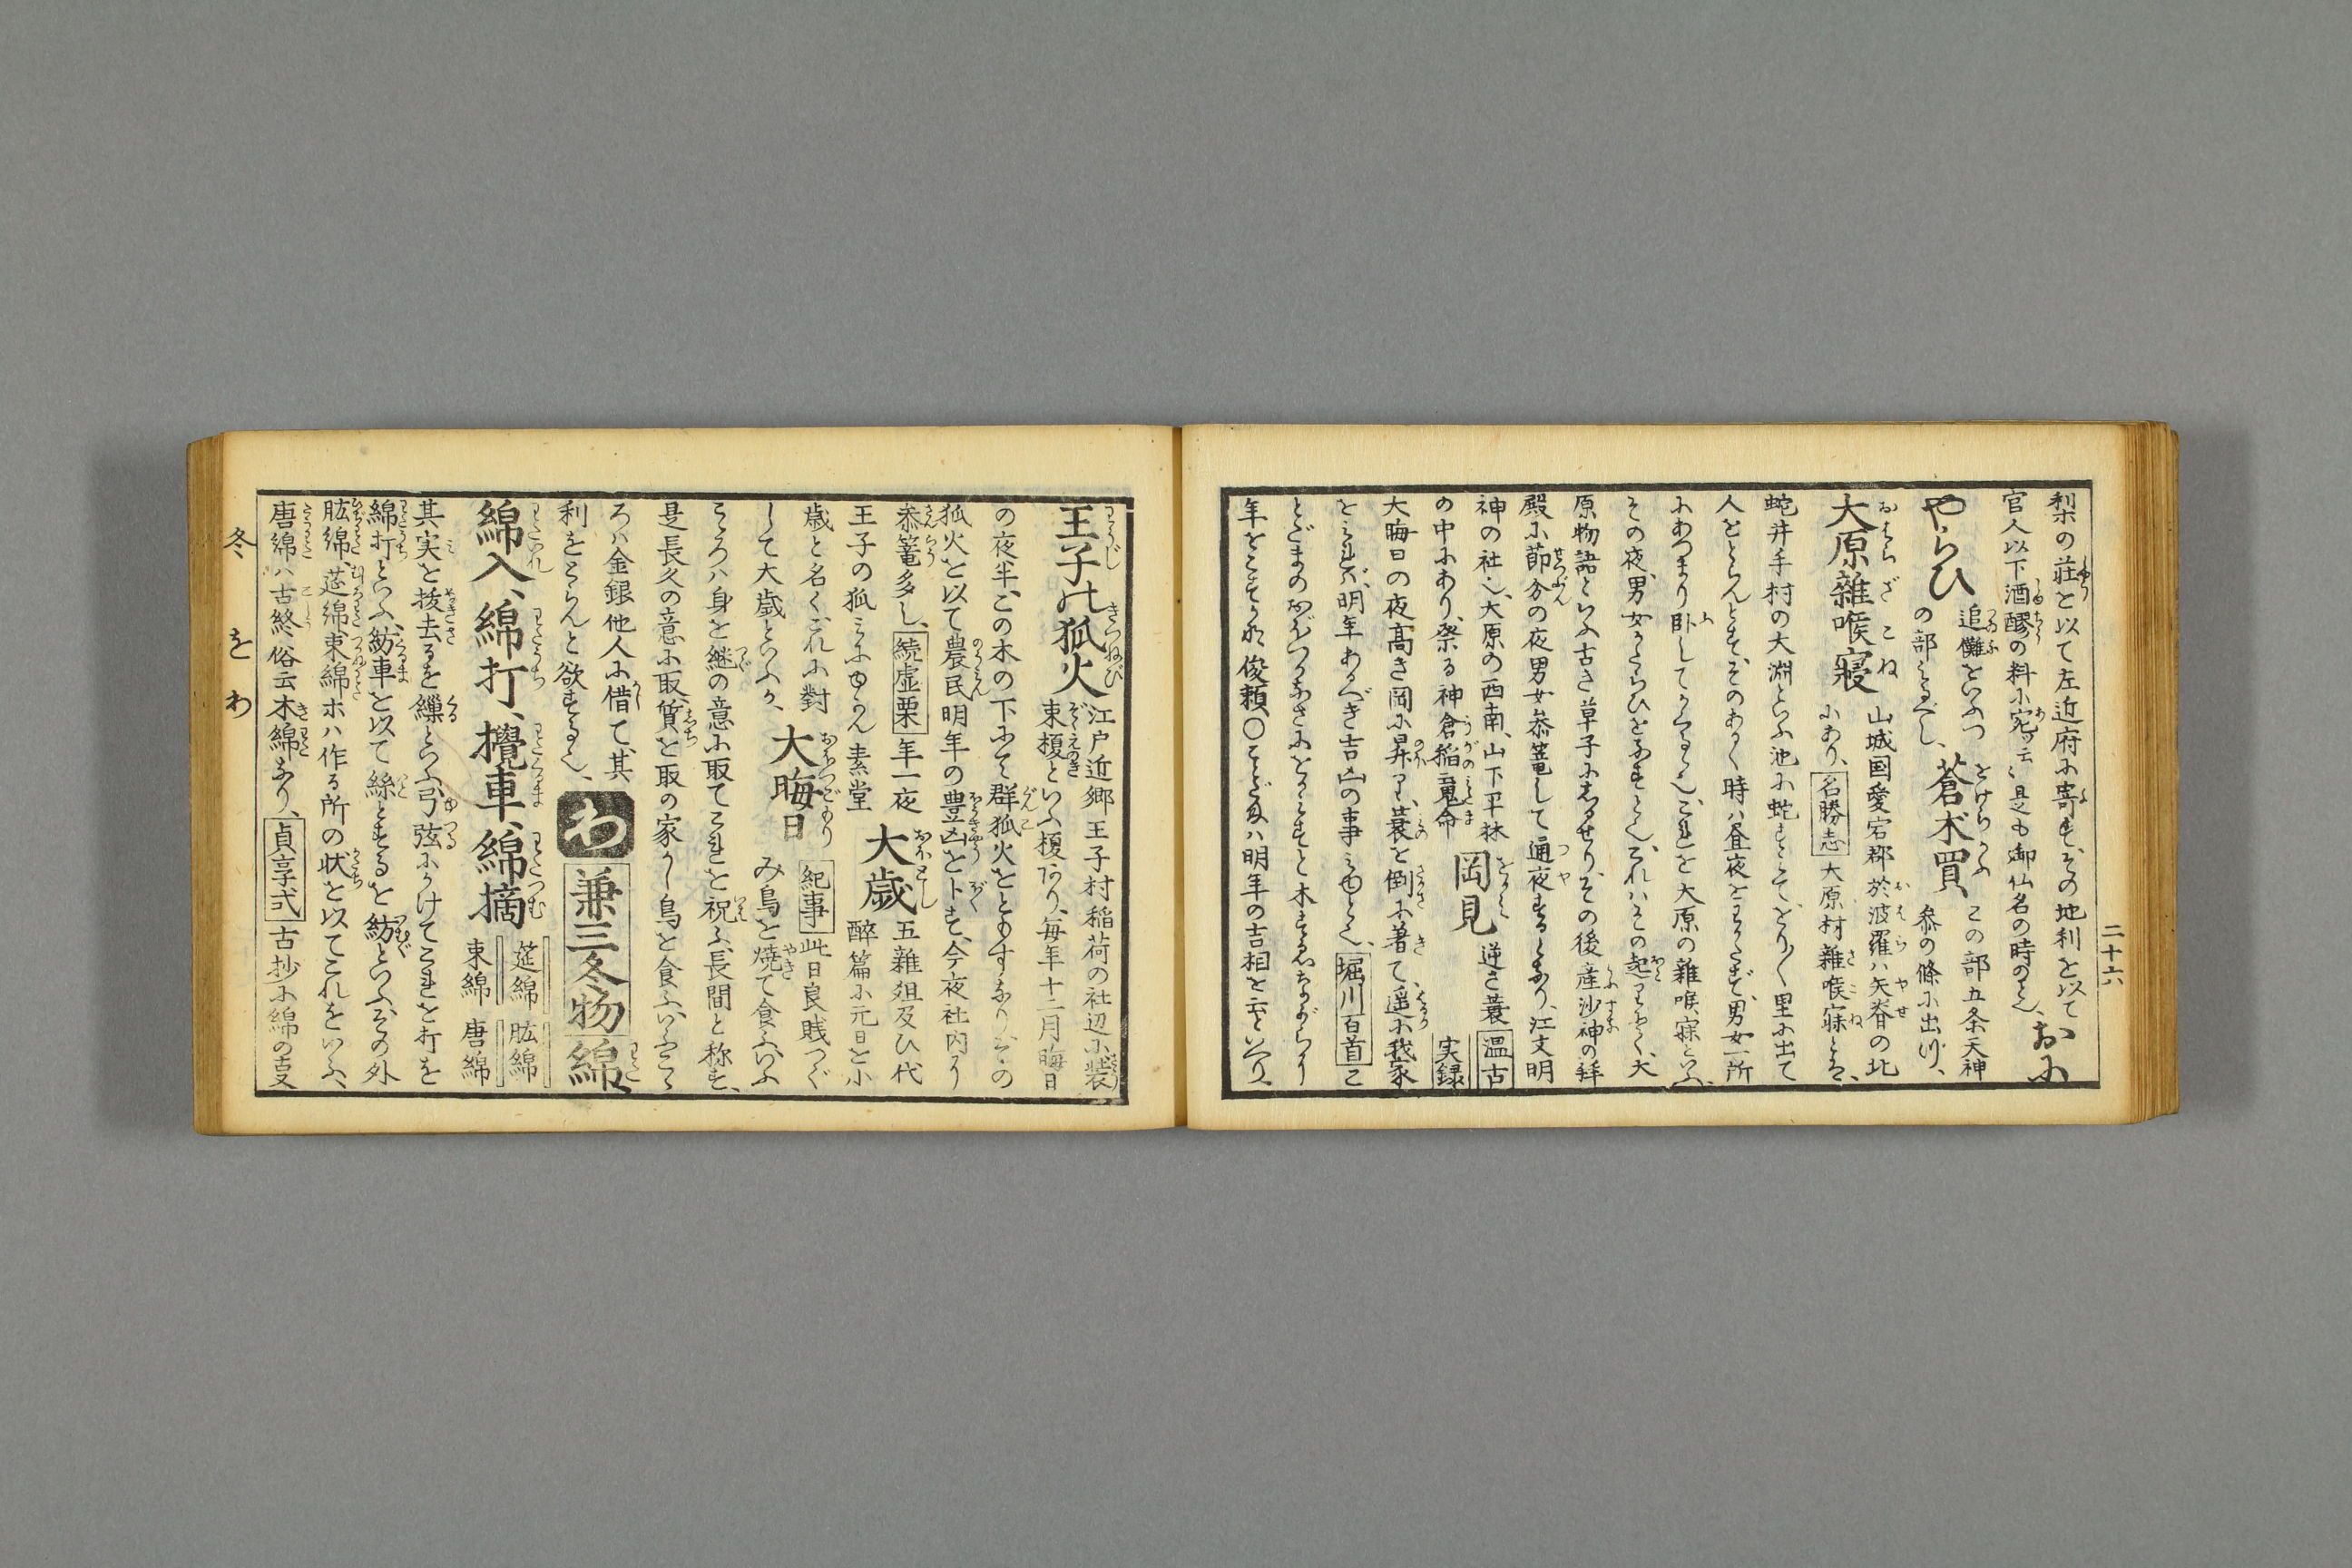 二十六
梨の莊を以て左近府に寄す、その地利を以て
官人以下酒醪の料に宛つ云々、是も御仏名の時のこと也、おに
やらひ 追儺をいふつの部に見るべし、蒼朮買、この部五条天神参の條に出ッ、
大原雜喉寢 山城国愛宕郡於波羅ハ矢脊の北にあり、名勝志 大原村雜喉寐とは、
蛇井手村の大淵といふ池に蛇すみて、をり〳〵里に出て
人をとらんとす、そのあるく時ハ昼夜をわかたず、男女一所
にあつまり臥してかくるゝ也、これを大原の雜喉寐といふ、
その夜、男女かたらひをなすと也、これハその起りとぞ、大
原物語といふ古き草子にのせたり、その後産沙神の拜
殿に節分の夜男女参篭して通夜するとなり、江文明
神の社也、大原の西南、山下平林の中にあり、祭る神倉稲魂命
岡見 逆さ蓑 温古実録
大晦日の夜高き岡に昇りて、蓑を倒に著て、遥に我家
をみれば、明年あるべき吉凶の事みゆと也、堀川百首 こ
とだまのおぼつかなさにをかみすと木ずゑながらも
年をこすかな 俊頼、〇ことだまハ明年の吉相を云といへり、
王子の狐火 江戸近郷王子村稲荷の社辺に装
束榎といふ榎あり、毎年十二月晦日
の夜半、この木の下にて群狐火をともすなり、その
狐火を以て農民明年の豊凶を卜す、今夜社内に
参篭多し、続虚栗 年一夜
王子の狐見にゆかん 素堂
大歳 五雜爼及ひ代醉篇に元日を小
歳と名く、これに對
して大歳といふか、
大晦日 紀事 此日良賎つぐみ鳥を焼て食ふ、いふ
こゝろハ身を継の意に取てこれを祝ふ、長間と称す、
是長久の意に取、質を取の家にし鳥を食ふ、いふこゝ
ろハ金銀他人に借て、其
利をとらんと欲する也、
わ 兼三冬物 綿
綿入、綿打、攪車、綿摘 莚綿 肱綿 束綿 唐綿
其実を抜去るを繅といふ、弓弦にかけてこれを打を
綿打といふ、紡車を以て絲とするを紡といふ、その外
肱綿、莚綿、束綿ホハ作る所の状を以てこれをいふ、
唐綿ハ古終俗云木綿なり、貞享式 古抄に綿の言又
冬 を わ